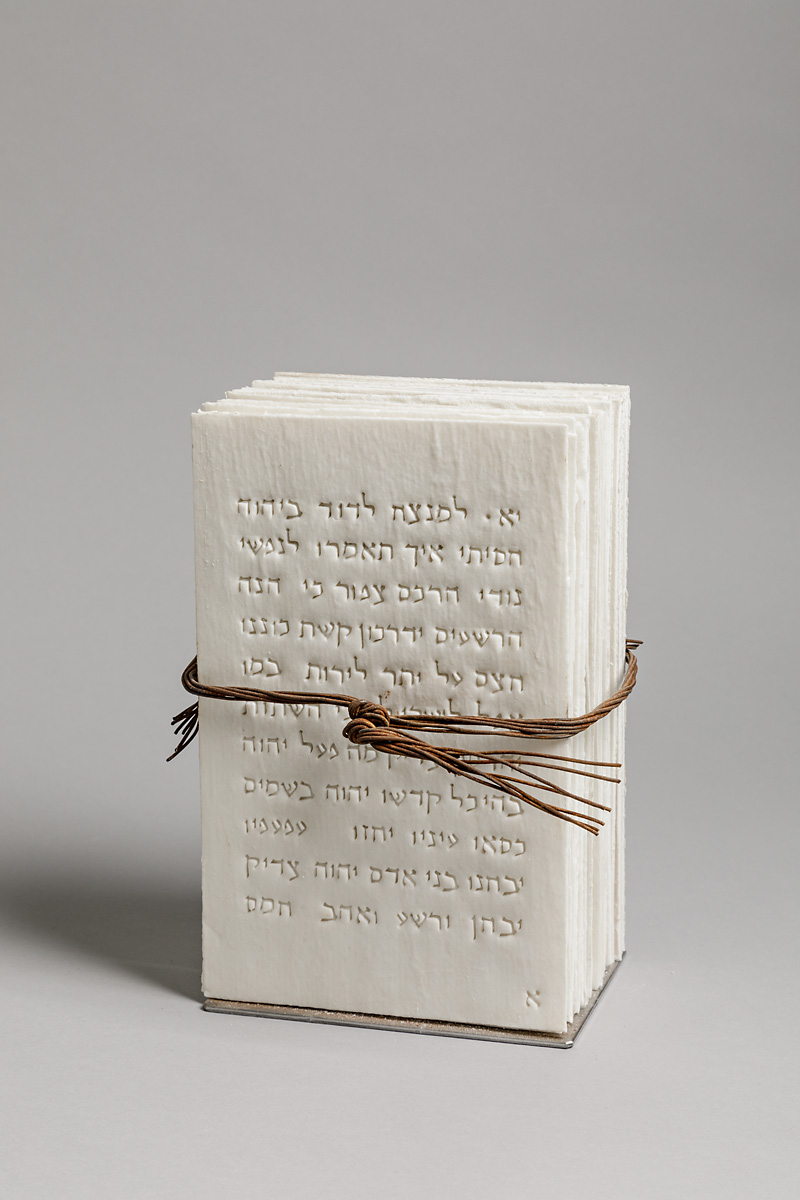 יא· למנצח לדוד ביהוה
חסיתי איך תאמרו לנפשי
נודי הרכם צפור כי הנה
הרשעים ידרכון קשת כוננו
חצם על יתר לירות במו
אפל השתות
מה פעל יהוה
בהיכל קדשו יהוה בשמים
כסאו עיניו יחזו עפעפיו
יבחנו בני אדם יהוה צדיק
יבחן ורשע ואהב חמס
א